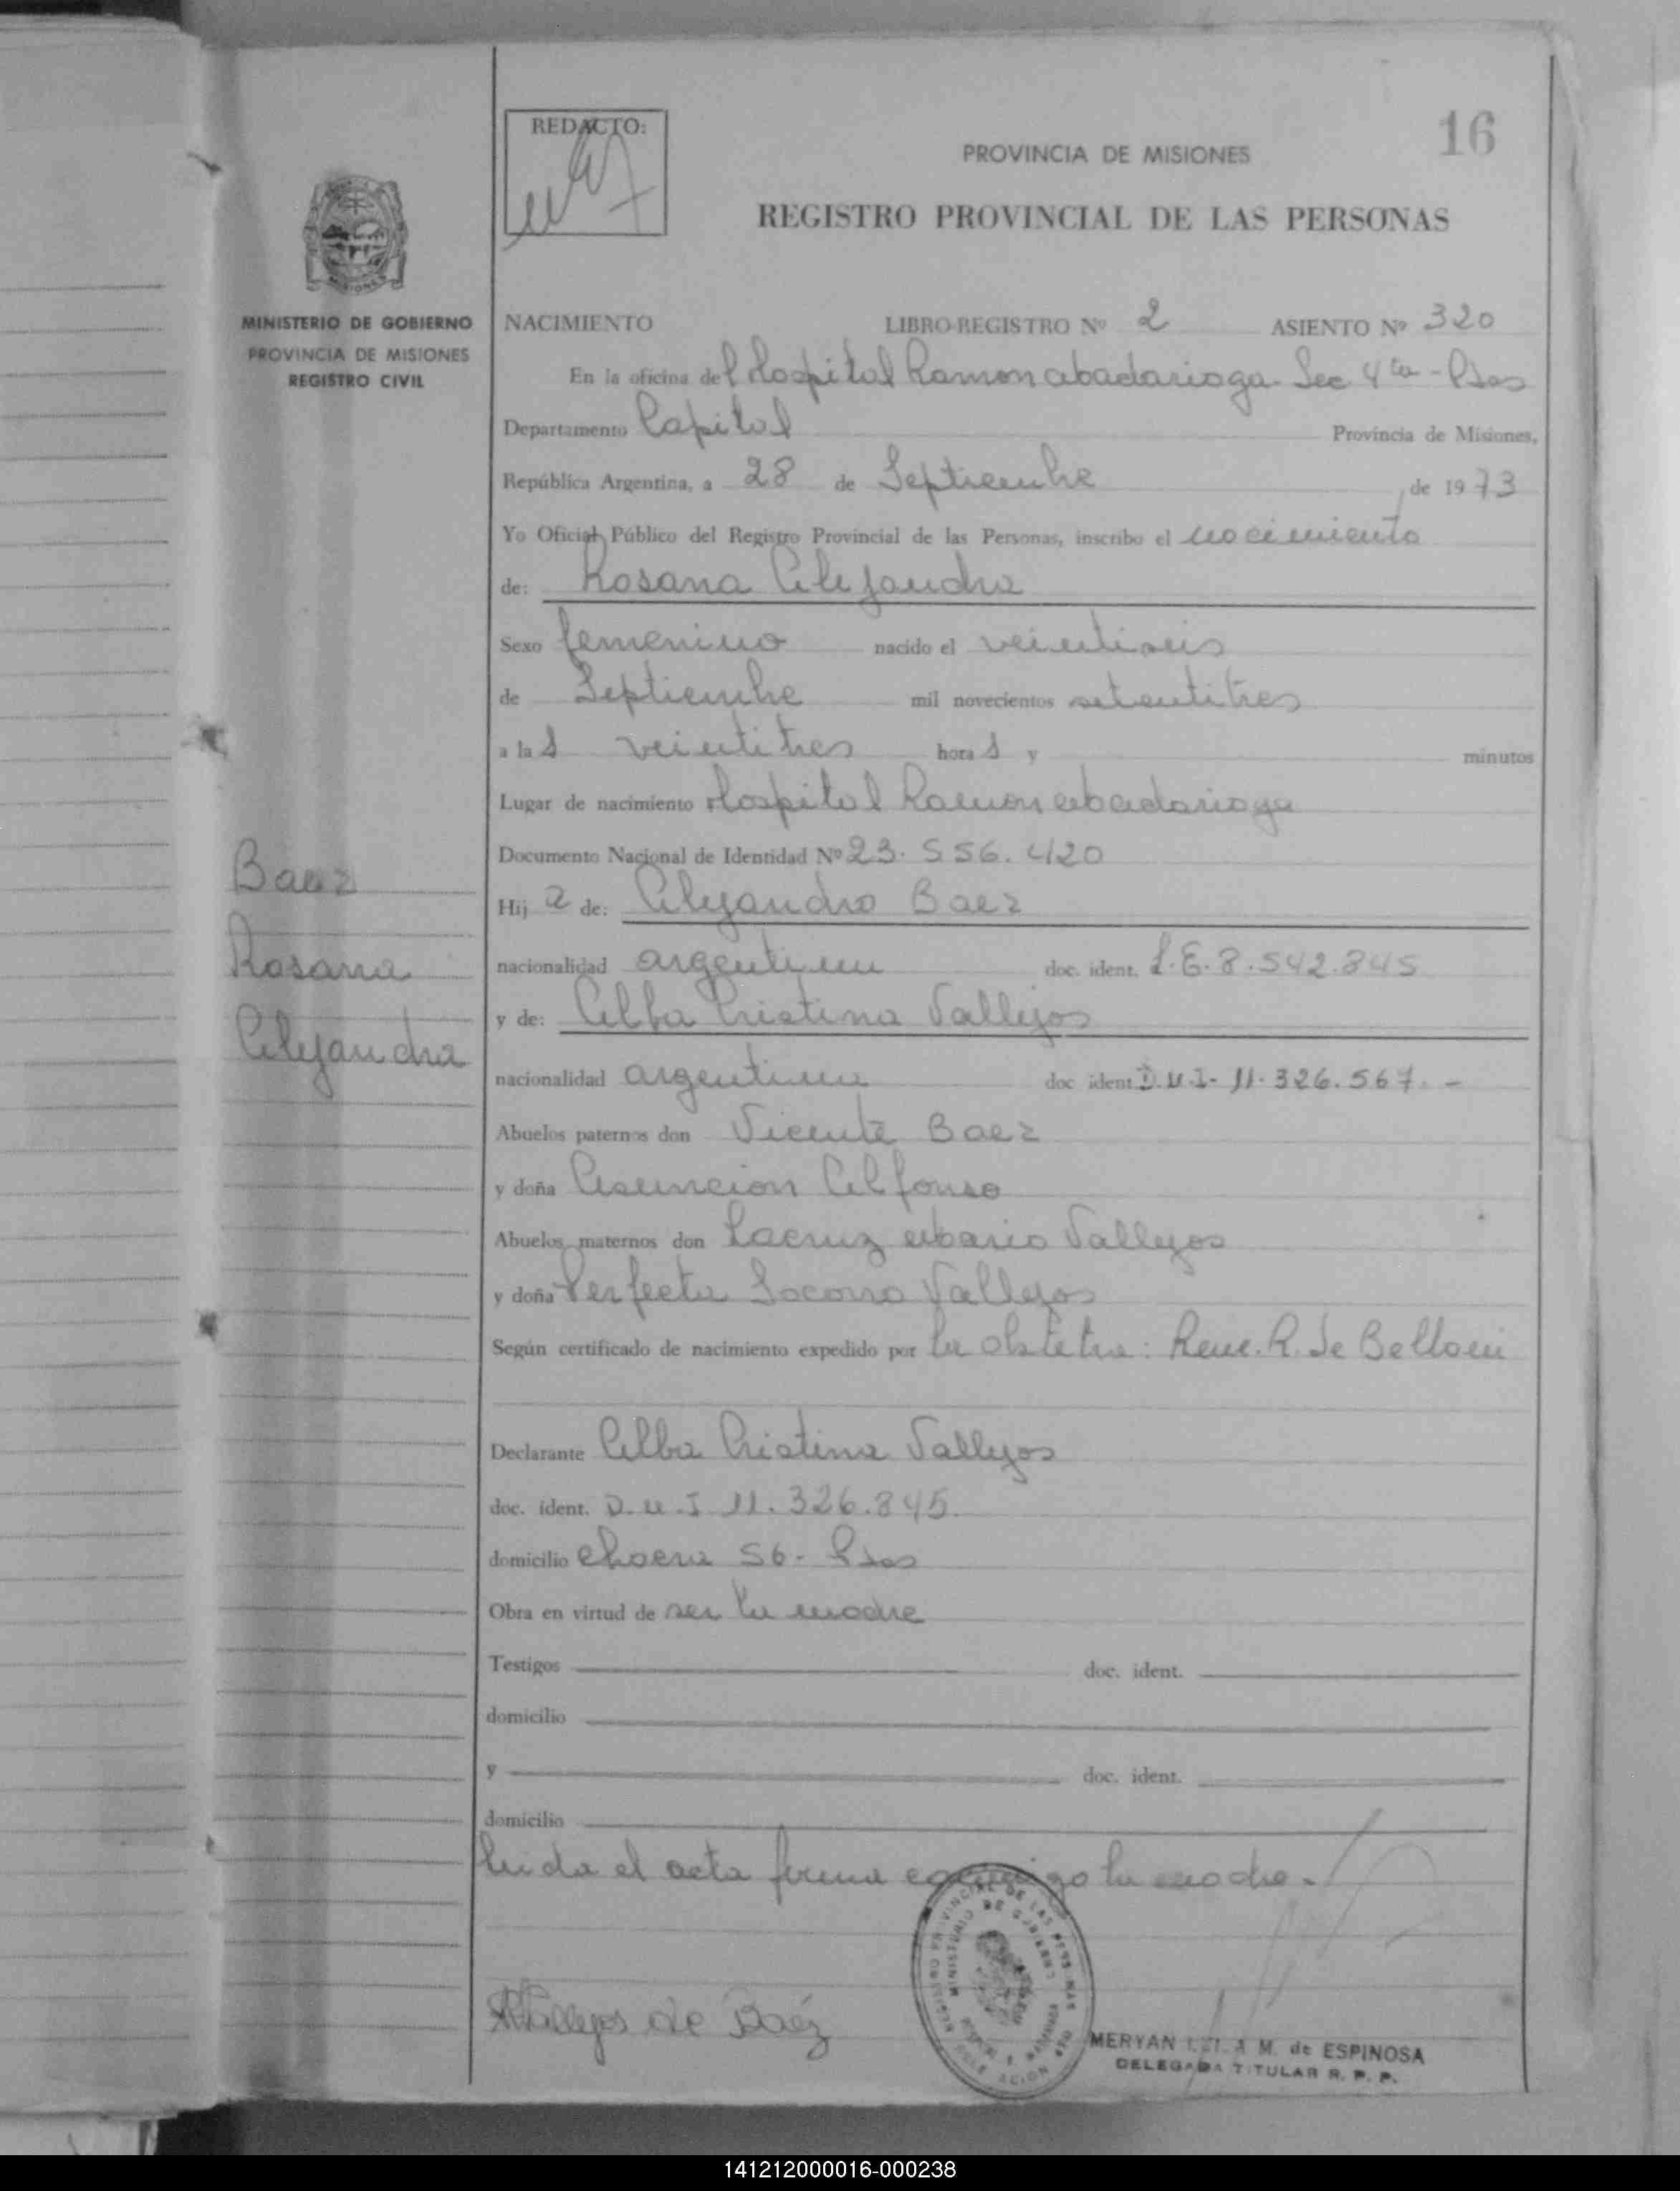 16
REDACTO:
PROVINCIA DE MISIONES
REGISTRO PROVINCIAL DE LAS PERSONAS
MINISTERIO DE GOBIERNO
PROVINCIA DE MISIONES
REGISTRO CIVIL
NACIMIENTO LIBRO-REGISTRO Nº 2 ASIENTO Nº 320
En la oficina del Hospital Ramon Madariaga Sec 4ta - Psas
Departamento Capital Provincia de Misiones,
República Argentina, a 28 de Septiembre de 1973
Yo Oficial Público del Registro Provincial de las Personas, inscribo el nacimiento
de: Rosana Alejandra
Sexo femenino nacido el veintiseis
de Septiembre mil novecientos setentitres
a las veintitres horas y minutos
Lugar de nacimiento Hospital Ramon Madariaga
Documento Nacional de Identidad Nº 23.556.420
Baez
Rosana
Alejandra
Hija de: Alejandro Baez
nacionalidad argentina doc. ident. L.E. 8.542.845
y de: Alba Cristina Vallejos
nacionalidad argentina doc ident D.N.I- 11.326.567.-
Abuelos paternos don Vicente Baez
y doña Asuncion Alfonso
Abuelos maternos don Lacruz Mario Vallejos
y doña Perfecta Socorro Vallejos
Según certificado de nacimiento expedido por la obstetra: Rene. R. de Belloni
Declarante Alba Cristina Vallejos
doc. ident. D.N.I 11.326.845
domicilio 56- Psas
Obra en virtud de ser la madre
Testigos doc. ident.
domicilio
y doc. ident.
domicilio
leida el acta firma conmigo la madre.-
Vallejos de Baéz
REGISTRO PROVINCIAL DE LAS PERSONAS
MINISTERIO DE GOBIERNO
MERYAN M. de ESPINOSA
DELEGADA TITULAR R. P. P.
141212000016-000238